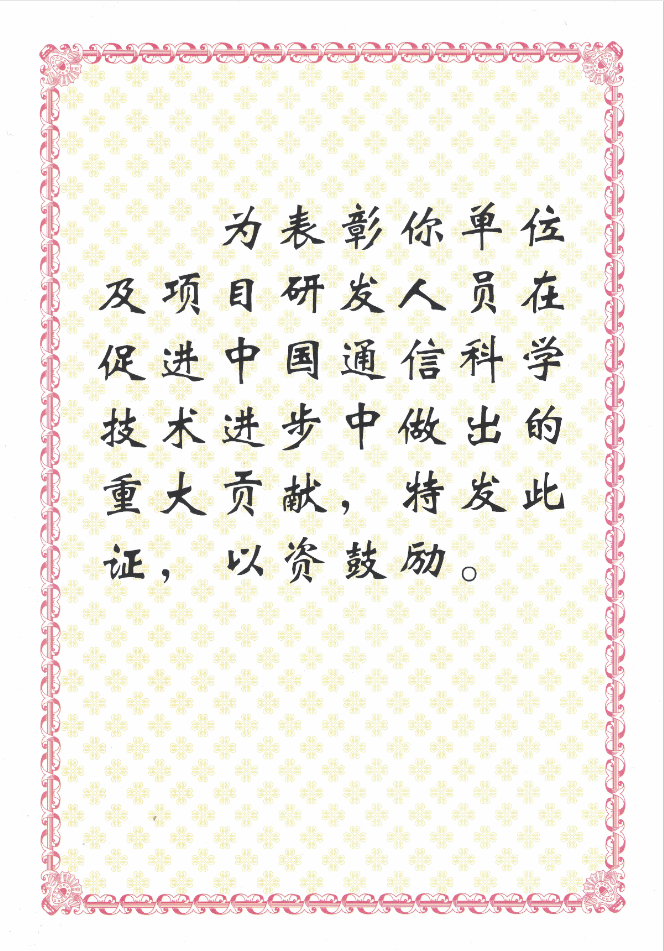 为表彰你单位
及项目研发人员在
促进中国通信科学
技术进步中做出的
重大贡献，特发此
证，以资鼓励。